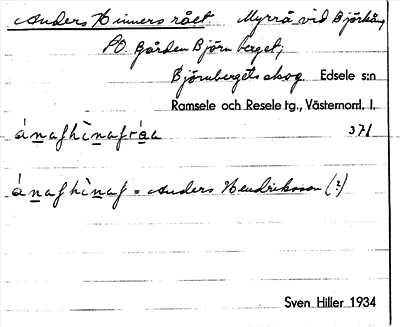 Anders Hinners rået. Myrrå vid Björkån,
PO. Gården Björnberget;
Björnbergets skog Edsele s:n
Ramsele och Resele tg., Västernorrl. l.
ánashìnasróa 371
ánashìnas = Anders Hendriksson (?)
Sven Hiller 1934